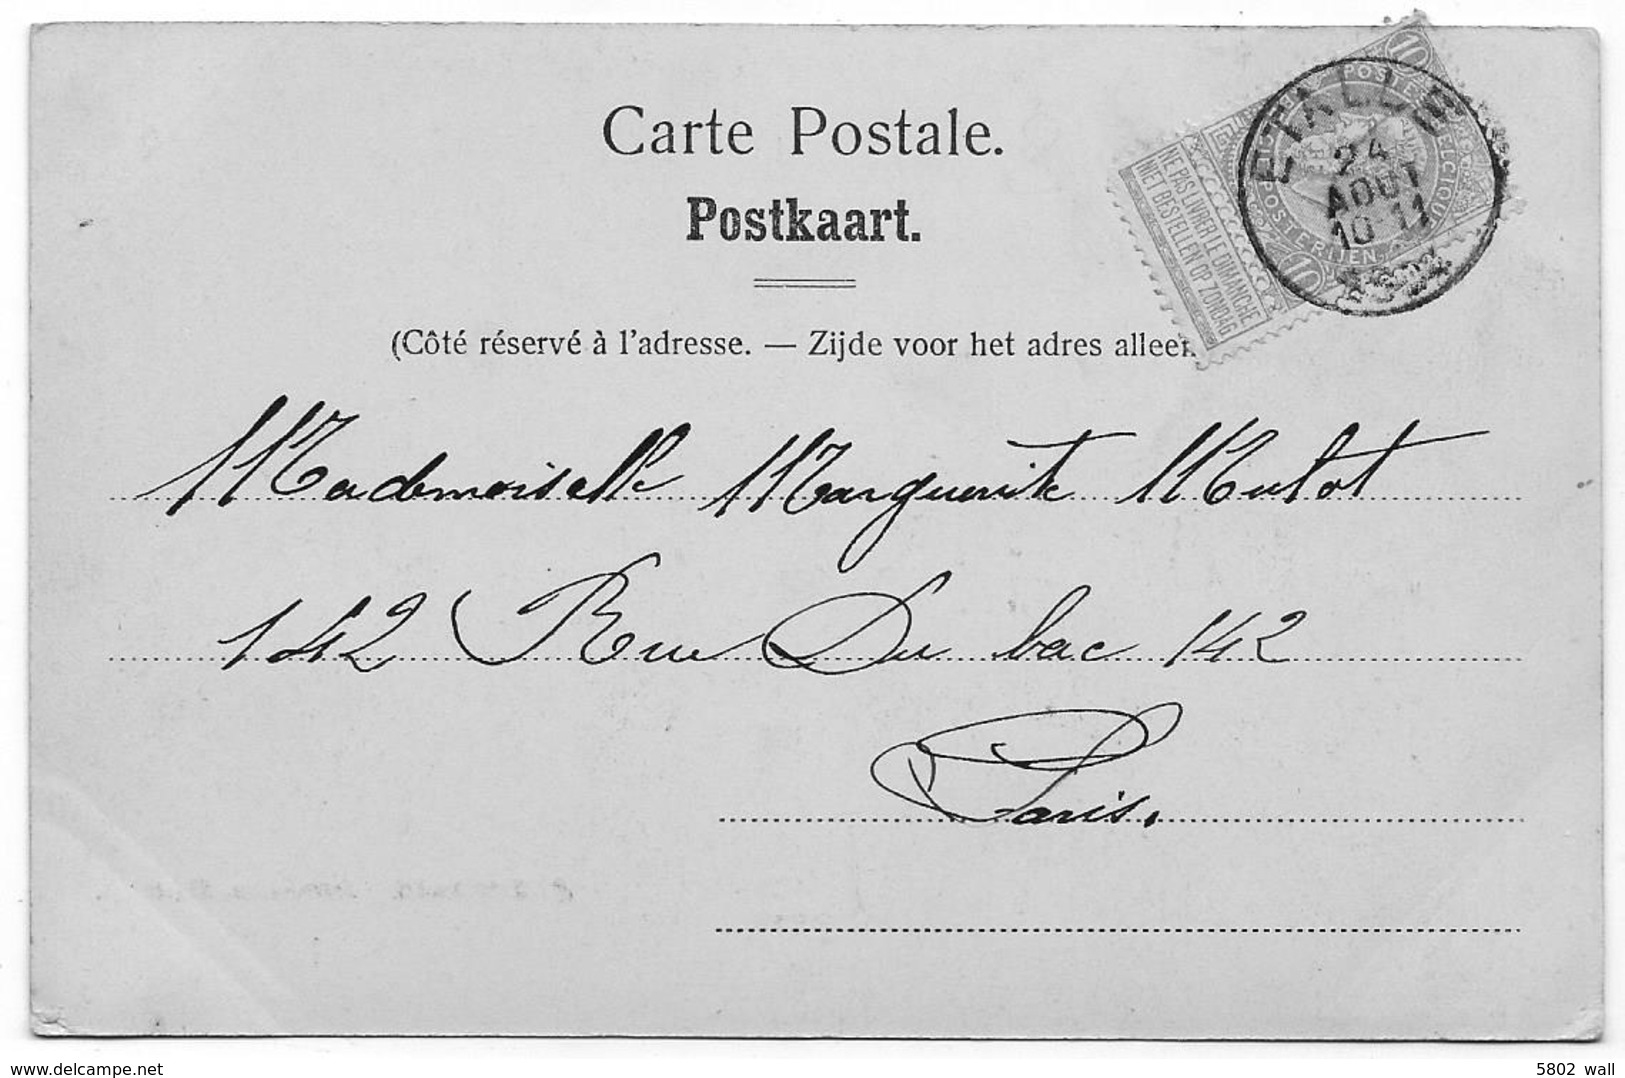 Carte Postale.
Postkaart.
(Côté réservé à l'adresse. — Zijde voor het adres alleen
NE PAS LIVRER LE DIMANCHE
NIET BESTELLEN OP ZONDAG
10
POSTERIJEN
10
ETALLE
24
AOUT
10-11
Mademoiselle Marguerite Mulot
142 Rue Du bac 142
Paris.
www.delcampe.net
5802 wall